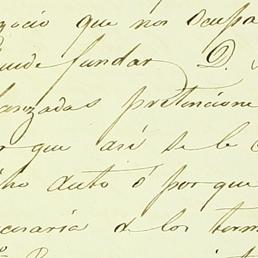 gocio que nos ocupa
puede fundar D.
lanzadas pretencione
r que así se le c
cho auto ó por que
cesaria de los term